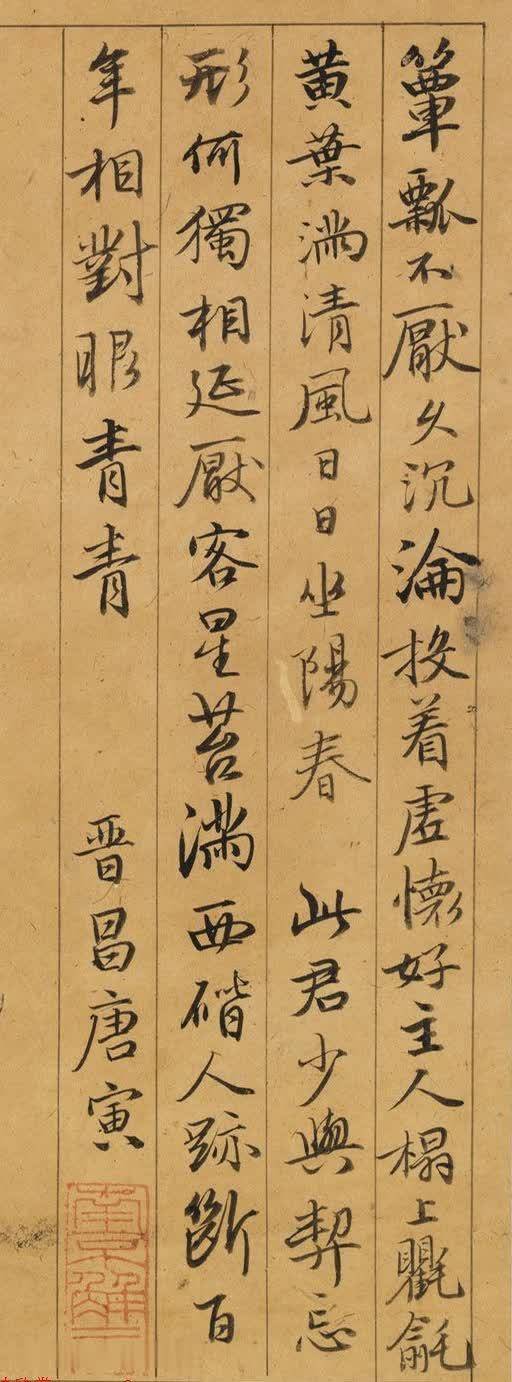 簞瓢不厭久沉淪投着虛懷好主人榻上氍毹
黃葉滿清風日日坐陽春 此君少與契忘
形何獨相延厭客星苔滿西階人跡斷百
年相對眼青青 晉昌唐寅
南京解元